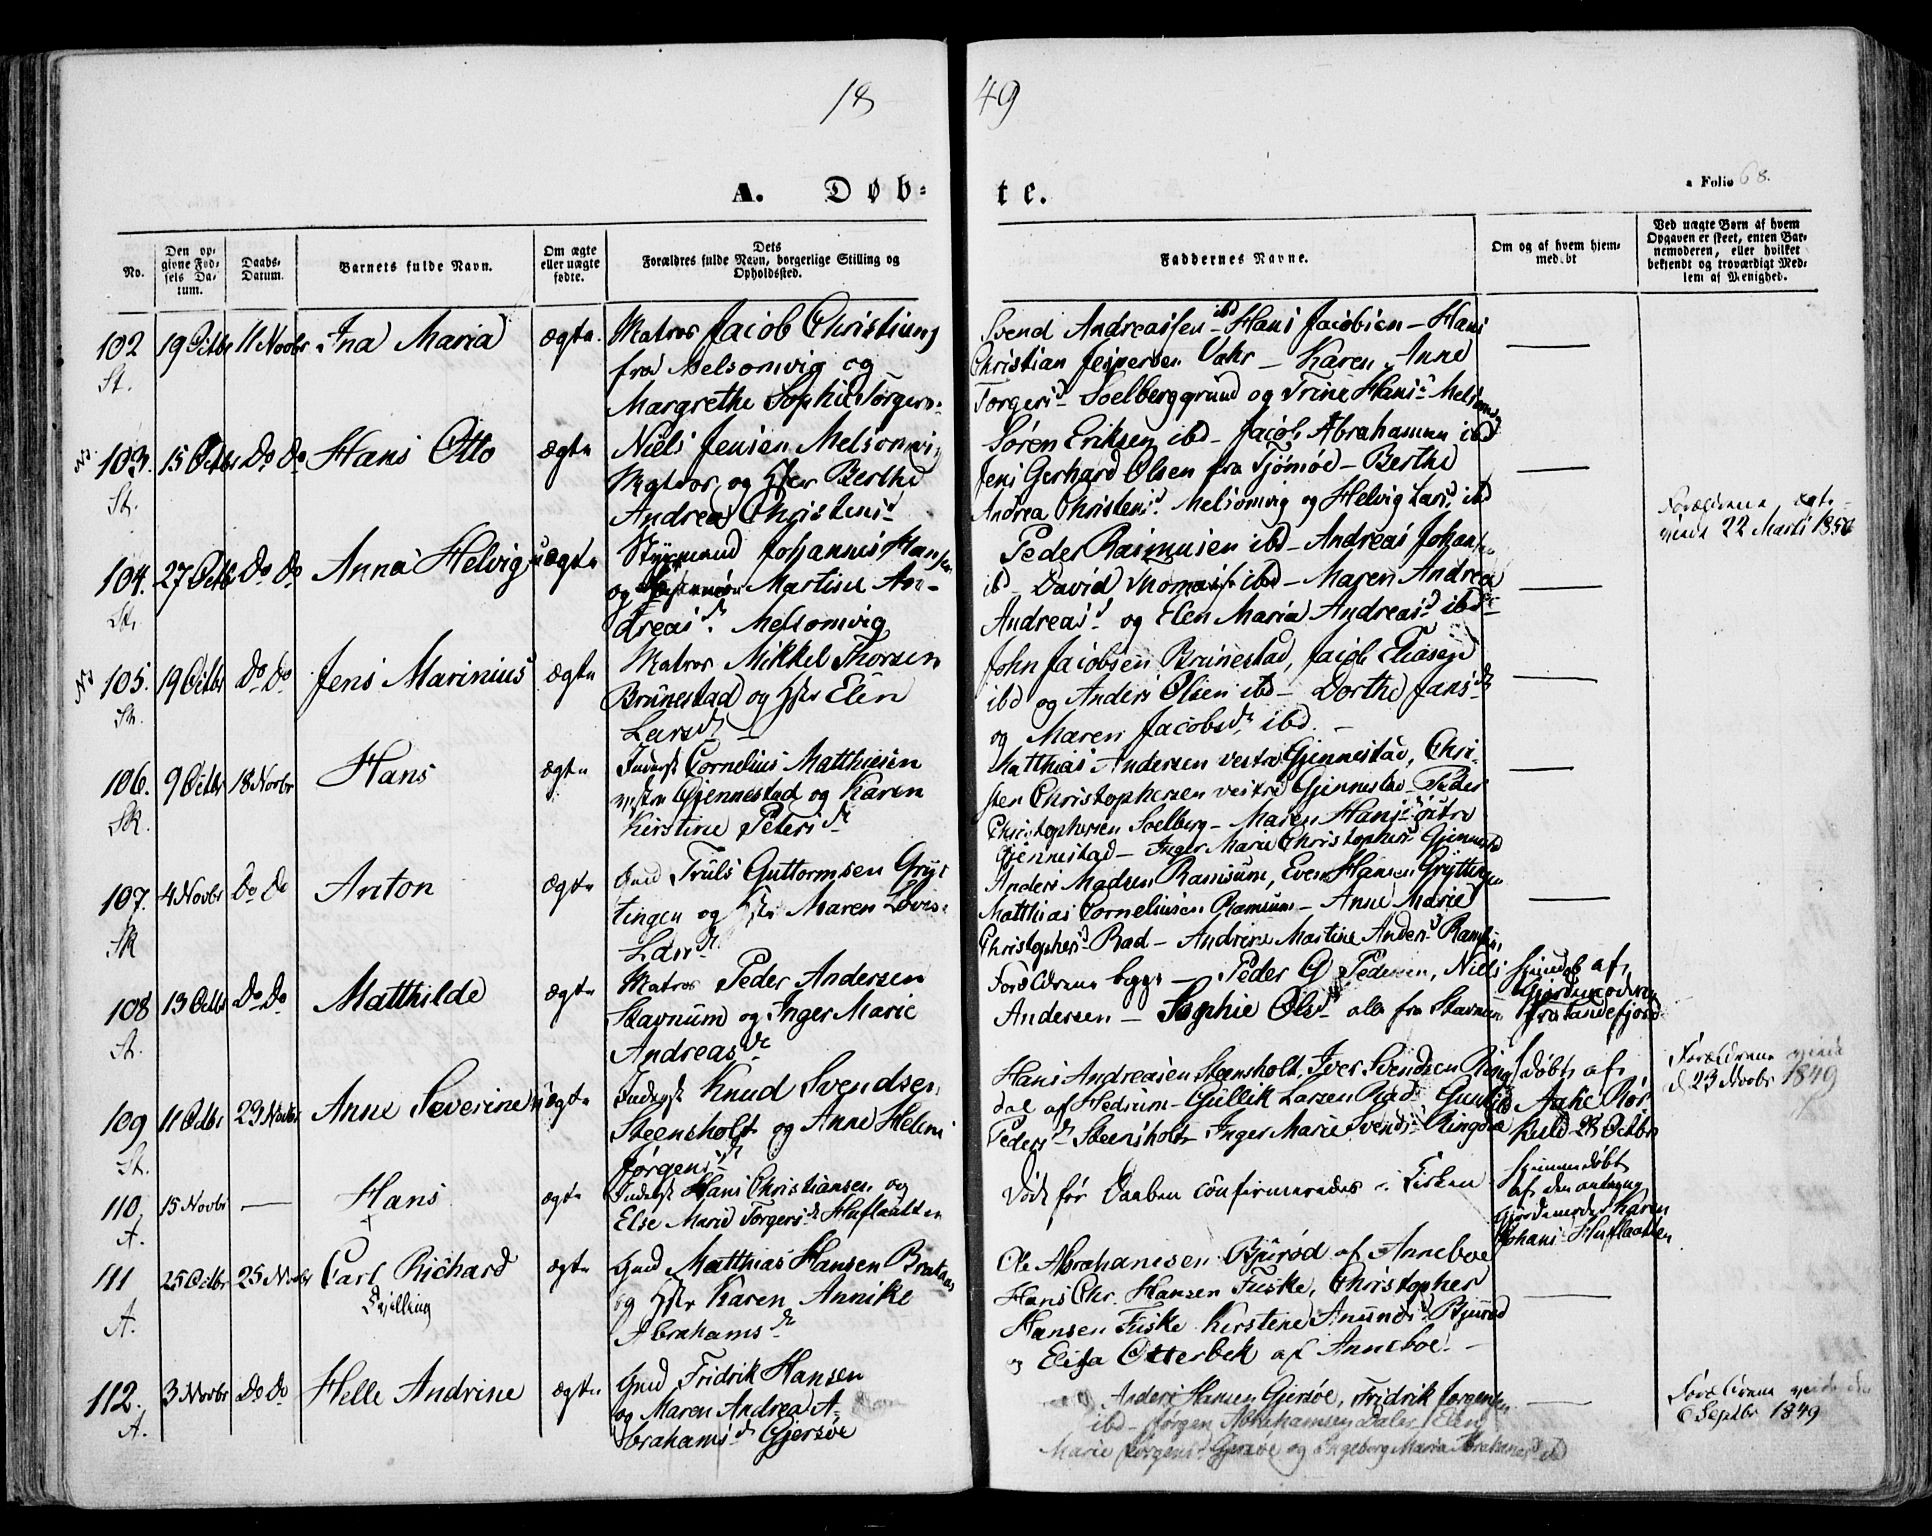 18 49
A. Døb- te.
a Folio 68.
No.
Den op-
givne Fød-
sels Da-
tum.
Daabs-
Datum.
Barnets fulde Navn.
Om ægte
eller uægte
fødte.
Dets
Forældres fulde Navn, borgerlige Stilling og
Opholdssted.
Faddernes Navne.
Om og af hvem hjem-
medøbt
Ved uægte Børn af hvem
Opgaven er skeet, enten Bar-
nemoderen, eller hvilket
bekjendt og troværdigt Med-
lem af Menighed.
102 19 Octbr 11 Novbr Ina Maria ægte.
St.
Matros Jacob Christians
fra Melsomvig og
Margrethe Sophie Torgers
Svend Andreassen ibd Hans Jacobsen - Hans
Christian Jespersen Vahr - Karen Anne
Torgersd Soelberggrund og Trine Hansd
103. 15 Octbr Do Do Hans Otto ægte
St.
Niels Jensen Melsomvig
Matros og Hstr Berthe
Andrea Christensd
Søren Eriksen ibd - Jacob Abrahamsen ibd
Jens Gerhard Olsen fra Tjömöe - Berthe
Andrea Christensd Melsomvig og Helvig Larsd ibd
104. 27 Octbr Do Do Anna Helvig uægte
St.
Styrmand Johannes Hansen
og Martine An-
dreasdr. Melsomvig
Peder Rasmusen ibd - Andreas Johans
ibd - David Thomass ibd - Maren Andrea
Andreasd og Elen Maria Andreasd ibd
Forældrene ægte-
viede 22 Marts 1850
105. 19 Octbr Do Do Jens Marinius ægte
St.
Matros Mikkel Thorsen
Brunestad og Hstr Elen
Larsdr
John Jacobsen Brunestad, Jacob Eliasen
ibd og Anders Olsen ibd - Dorthe Jansdr
og Maren Jacobsdr ibd. -
106. 9 Octbr 18 Novbr Hans ægte
Sk.
Inderst Cornelius Matthiesen
vestre Gjennestad og Karen
Kirstine Petersdr
Matthias Andersen vestre Gjennestad, Chri-
sten Christophersen vestre Gjennestad - Peder
Christophersen Soelberg - Maren Hansd östre
Gjennestad - Inger Marie Christophersd Gjennestad
107. 4 Novbr Do Do Anton ægte
Sk
Gmd Truls Guttormsen Gryt
tingen og Hstr Maren Lovis
Larsdr
Anders Madsen Ramsum, Even Hansen Gryttingen
Matthias Corneliusen Ramsum - Anne Marie
Christophersd Rad - Andrine Martine Andersd Ramsum
108 13 Octbr Do Do Matthilde ægte
St.
Matros Peder Andersen
Stavnum og Inger Marie
Andreasdr
Forældrene begge - Peder G Pedersen, Niels
Andersen - Sophie Olsdr alle fra Stavnum
hjemdøb af
Gjordemoderen
fra Sandefjord
109 11 Octbr 23 Novbr Anne Severine uægte
St.
Inderst Knud Svendsen
Steensholt og Anne Helene
Jörgensdr
Hans Andreasen Steensholt, Iver Svendsen Ring
dal af Hedrum - Gullik Larsen Rad
Pedersdr Steensholt - Inger Marie Svendsd Ringdal
døbt af
Aake Rør
kuld 28 Octbr
Forældrene viede
d 23 Novbr 1849
110. 15 Novbr — Hans ægte
A. +
Inderst Hans Christiansen og
Else Marie Torgersdr Huflaatten
Döde før Daaben confirmeredes i Kirken
hjemmedøbt
af den antagne
Gjordemoder Karen
Johansd Huflaatten
111 25 Octbr 25 Novbr Carl Richard ægte
A. Tvilling
Gmd Matthias Hansen Brataas
og Hstr Karen Annike
Abrahamsdr
Ole Abrahamsen Bjuröd af Anneboe
Hans Chr. Hansen Fuske, Christopher
Hansen Fuske Kirstine Anundsd Bjuröd
og Elisa Otterbek af Anneboe. -
112. 3 Novbr Do Do Helle Andrine ægte
A.
Gmd Fridrik Hansen
og Maren Andrea A-
brahamsdr Gjersöe
Anders Hansen Gjersöe, Fridrik Jorgensen
ibd - Jørgen Abrahamsen Daler, Elen
Marie Jorgensd Gjersöe og Ingeborg Maria Abrahamsd ibd
Forældrene viede den
6 Septbr 1849